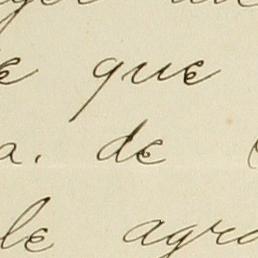 e que
a. de
le agra